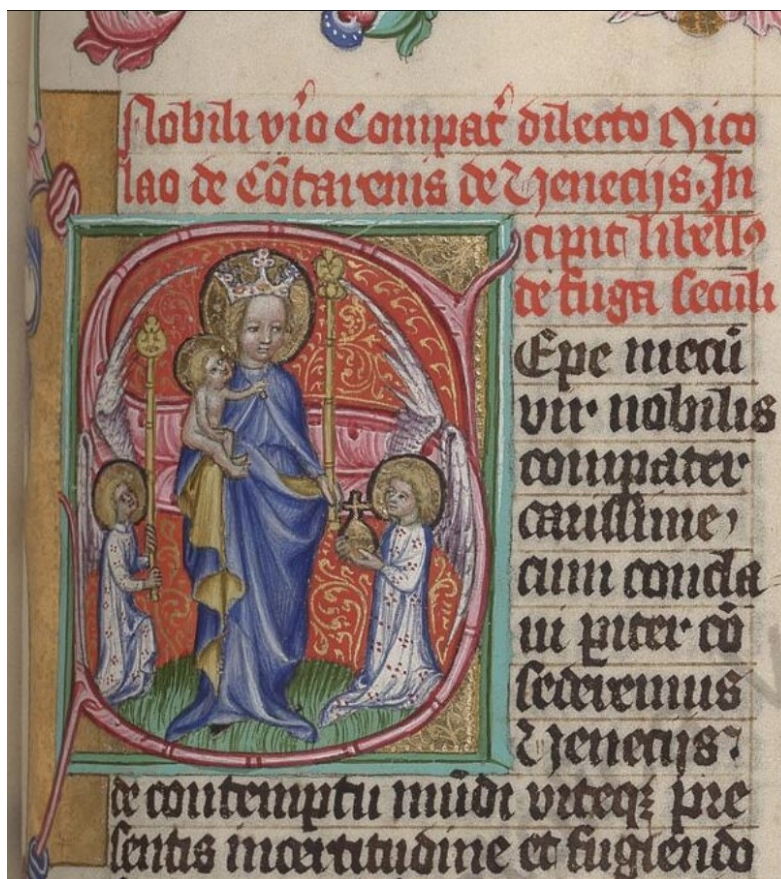 Nobili vi̊o Compat̃ dilecto Nico
lao de Cōtarenis de Venecijs. In
cipit libellꝰ
de fuga seculi
SEpe mecū
vir nobilis
compater
carissime,
cum concla
ui ꝑiter cō
sederemus
Venecijs:
de contemptu mūdi viteqꝫ pre
sentis incertitudine et fugiendo